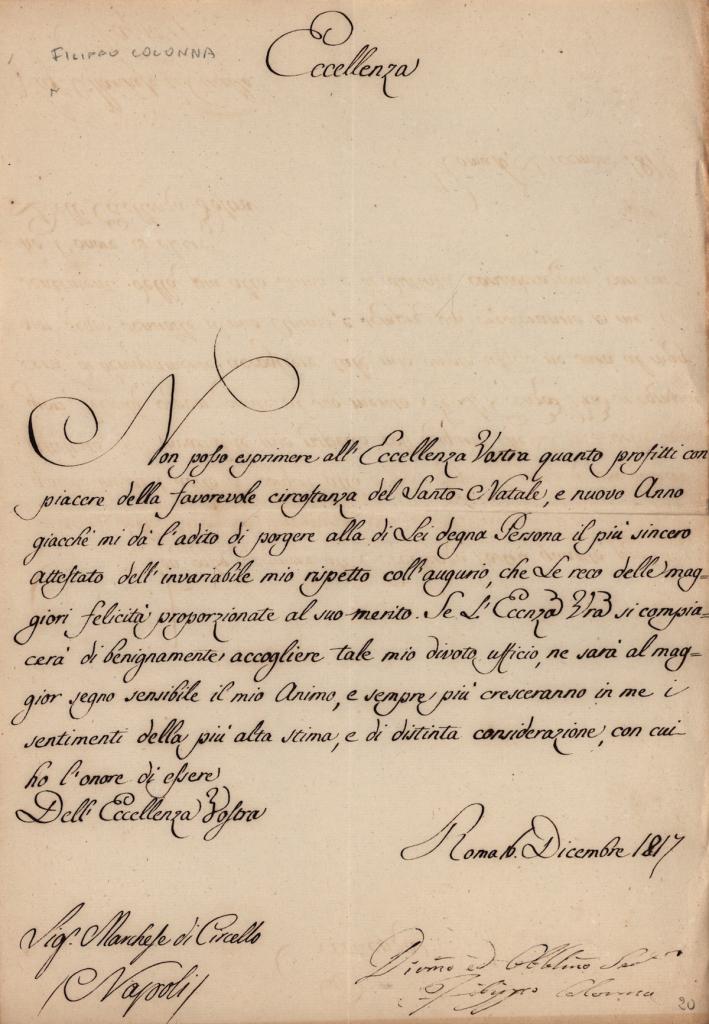 FILIPPO COLONNA
Eccellenza
Non posso esprimere all' Eccellenza Vostra quanto profitti con
piacere della favorevole circostanza del Santo Natale, e nuovo Anno
giacchè mi dà l'adito di porgere alla di Lei degna Persona il più sincero
attestato dell' invariabile mio rispetto coll' augurio, che Le reco delle mag=
giori felicità proporzionate al suo merito. Se L' Eccnza Vra si compia=
cerà di benignamente accogliere tale mio divoto ufficio, ne sarà al mag=
gior segno sensibile il mio Animo, e sempre più cresceranno in me i
sentimenti della più alta stima, e di distinta considerazione, con cui
ho l'onore di essere
Dell' Eccellenza Vostra
Roma 16. Dicembre 1817
Sig.r Marchese di Circello
Divmo ed Obblmo Serv.r
/Napoli/
Filippo Colonna
20